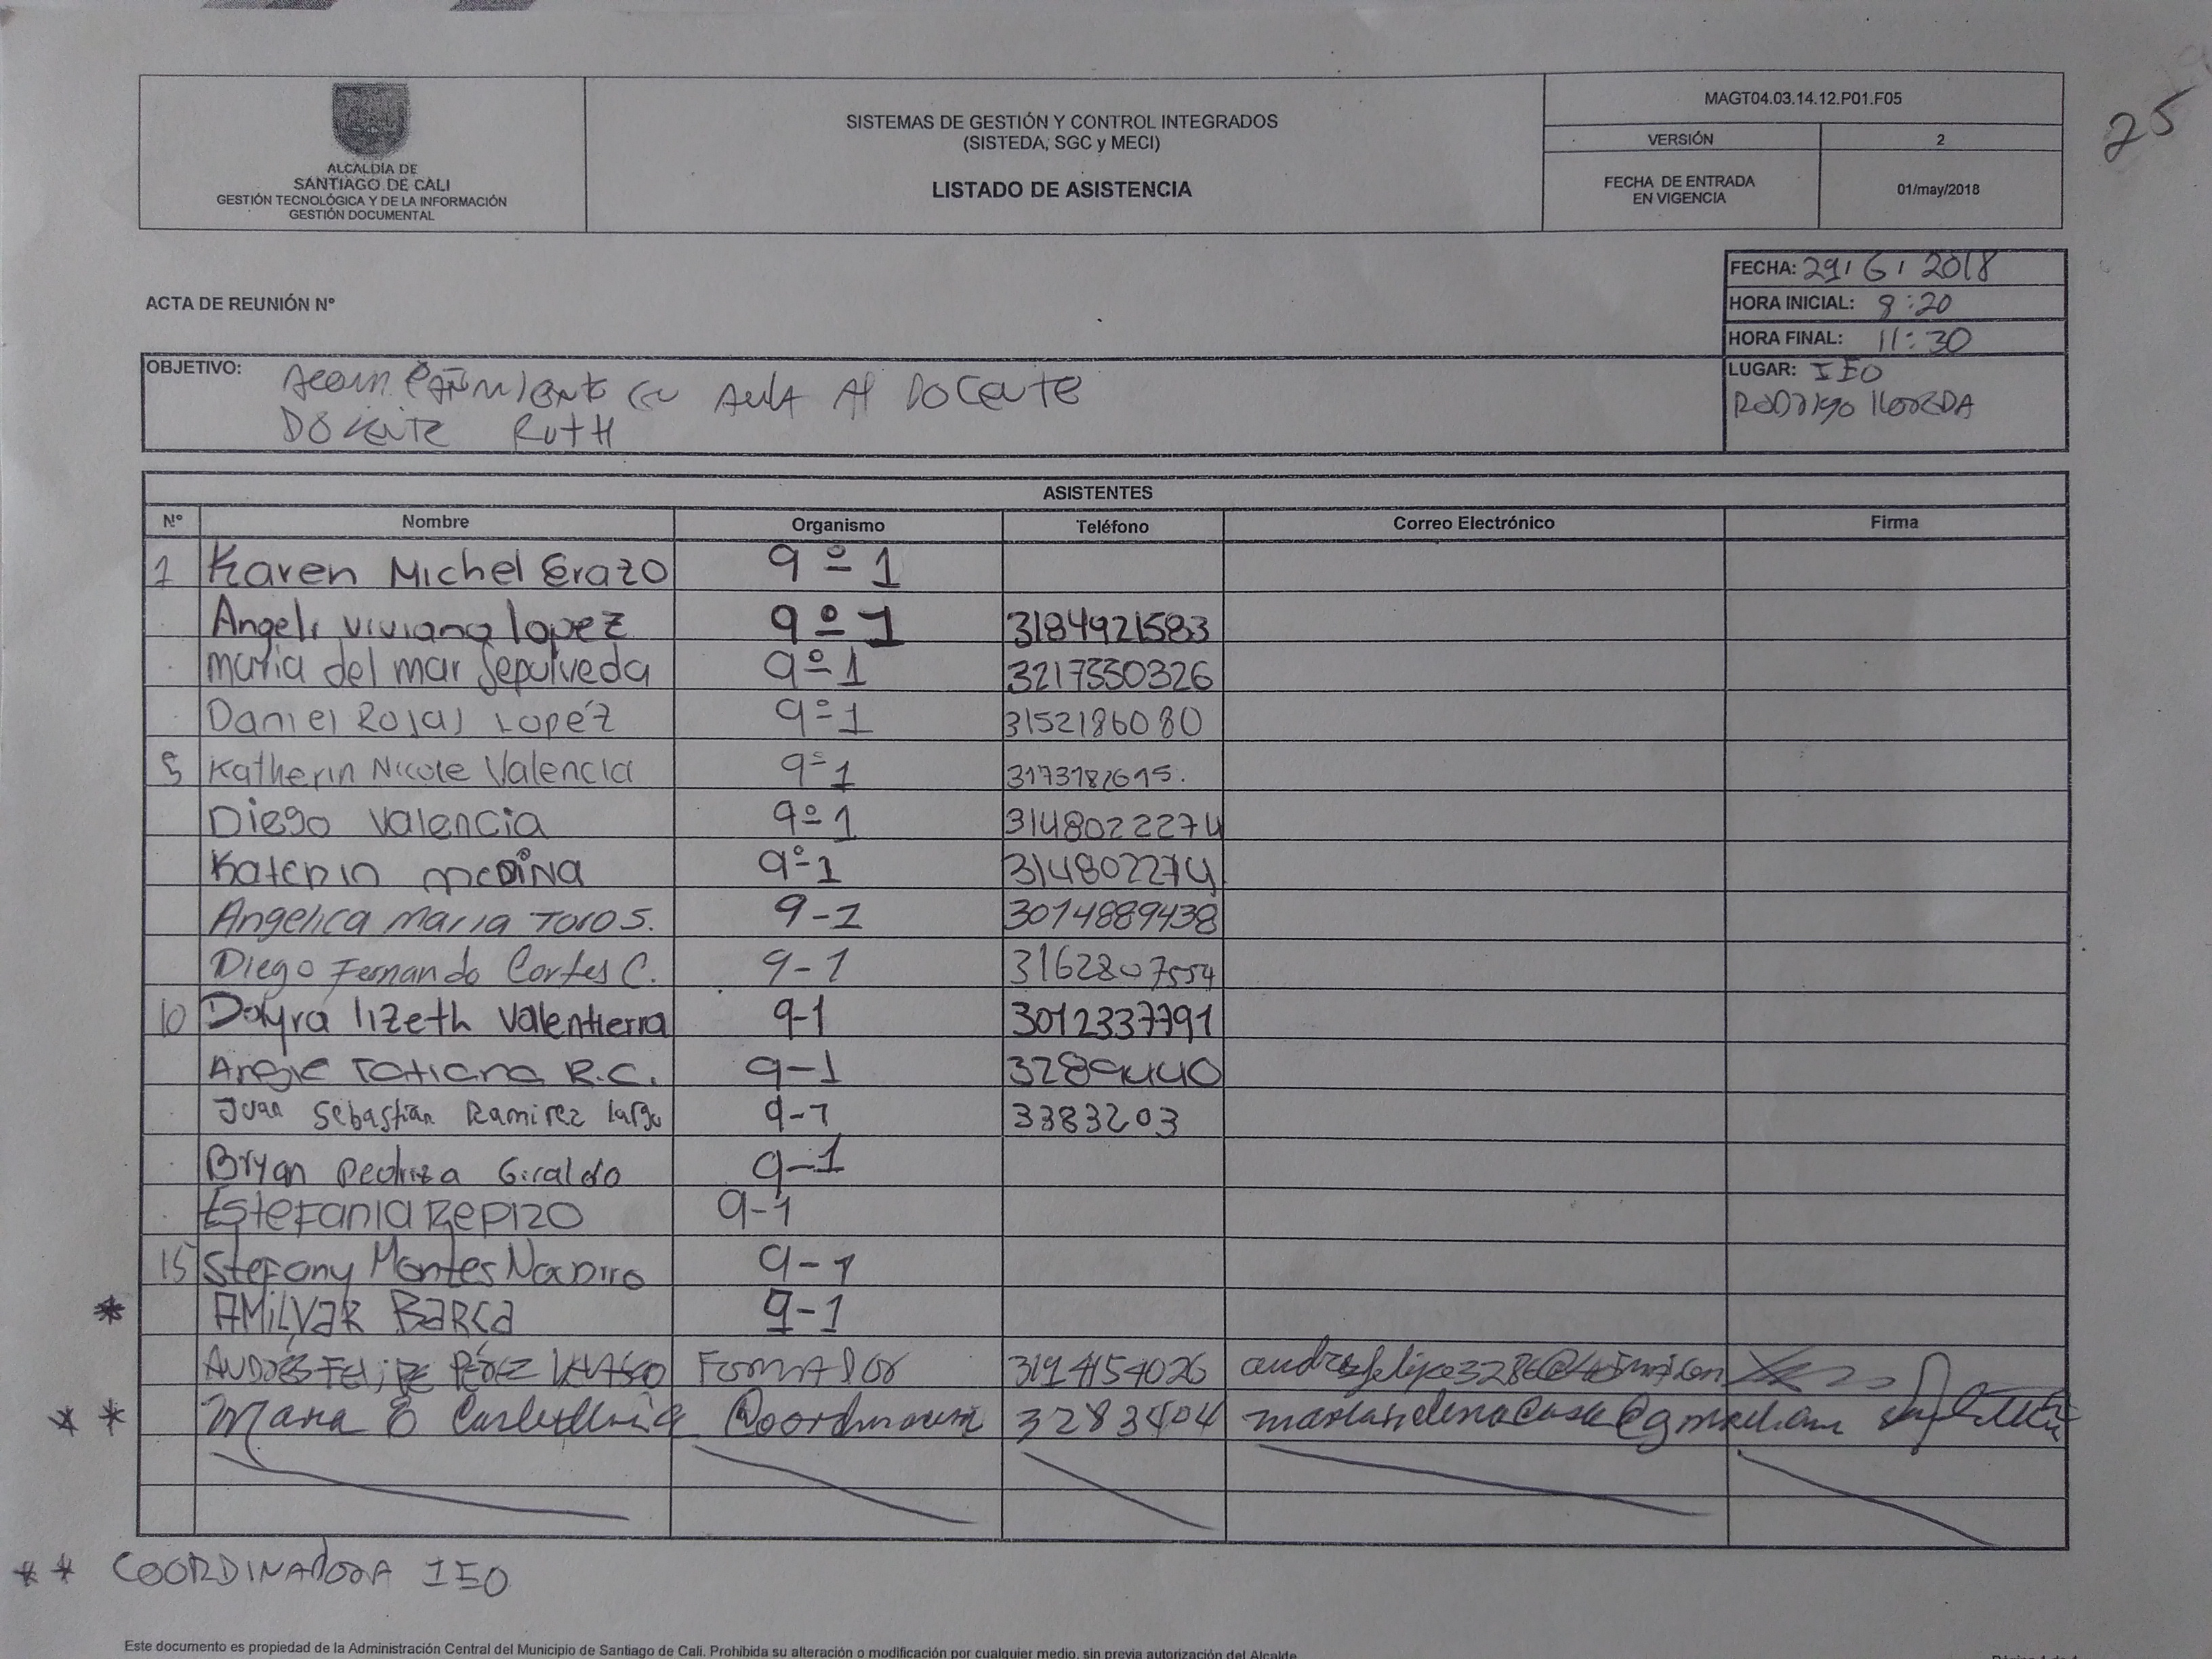 25
ALCALDÍA DE
SANTIAGO DE CALI
GESTIÓN TECNOLÓGICA Y DE LA INFORMACIÓN
GESTIÓN DOCUMENTAL
SISTEMAS DE GESTIÓN Y CONTROL INTEGRADOS
(SISTEDA, SGC y MECI)
LISTADO DE ASISTENCIA
MAGT04.03.14.12.P01.F05
VERSIÓN 2
FECHA DE ENTRADA
EN VIGENCIA
01/may/2018
ACTA DE REUNIÓN N°
FECHA: 29/6/2018
HORA INICIAL: 8:20
HORA FINAL: 11:30
LUGAR: IEO
RODRIGO LLOREDA
OBJETIVO: Acompañamiento en AulA Al DOCENTE
DOCENTE RUTH
ASISTENTES
N° Nombre Organismo Teléfono Correo Electrónico Firma
1 Karen Michel Erazo 9º-1
Angeli viviana lopez 9º-1 3184921583
maria del mar Sepulveda 9º-1 3217550326
Daniel Rojas Lopéz 9º-1 3152186080
5 Katherin Nicole Valencia 9º-1 3173182615.
Diego Valencia 9º-1 3148022274
Katerin meDiNa 9º-1 314802274
Angelica Maria Toro S. 9-1 3014889438
Diego Fernando Cortes C. 9-1 3162807554
10 Dayra lizeth Valentierra 9-1 3012337791
Angie Tatiana R.C. 9-1 3289440
Juan Sebastián Ramirez largo 9-1 3383203
Bryan Pedriza Giraldo 9-1
Estefania Repizo 9-1
15 Stefany Montes Navarro 9-1
* AMILVAR BARCA 9-1
ANDRÉS FELIPE PÉREZ VELASCO FormADOR 3194154026
* * Maria E Coordinadora 3283404
* * COORDINADORA IEO
Este documento es propiedad de la Administración Central del Municipio de Santiago de Cali. Prohibida su alteración o modificación por cualquier medio, sin previa autorización del Alcalde.